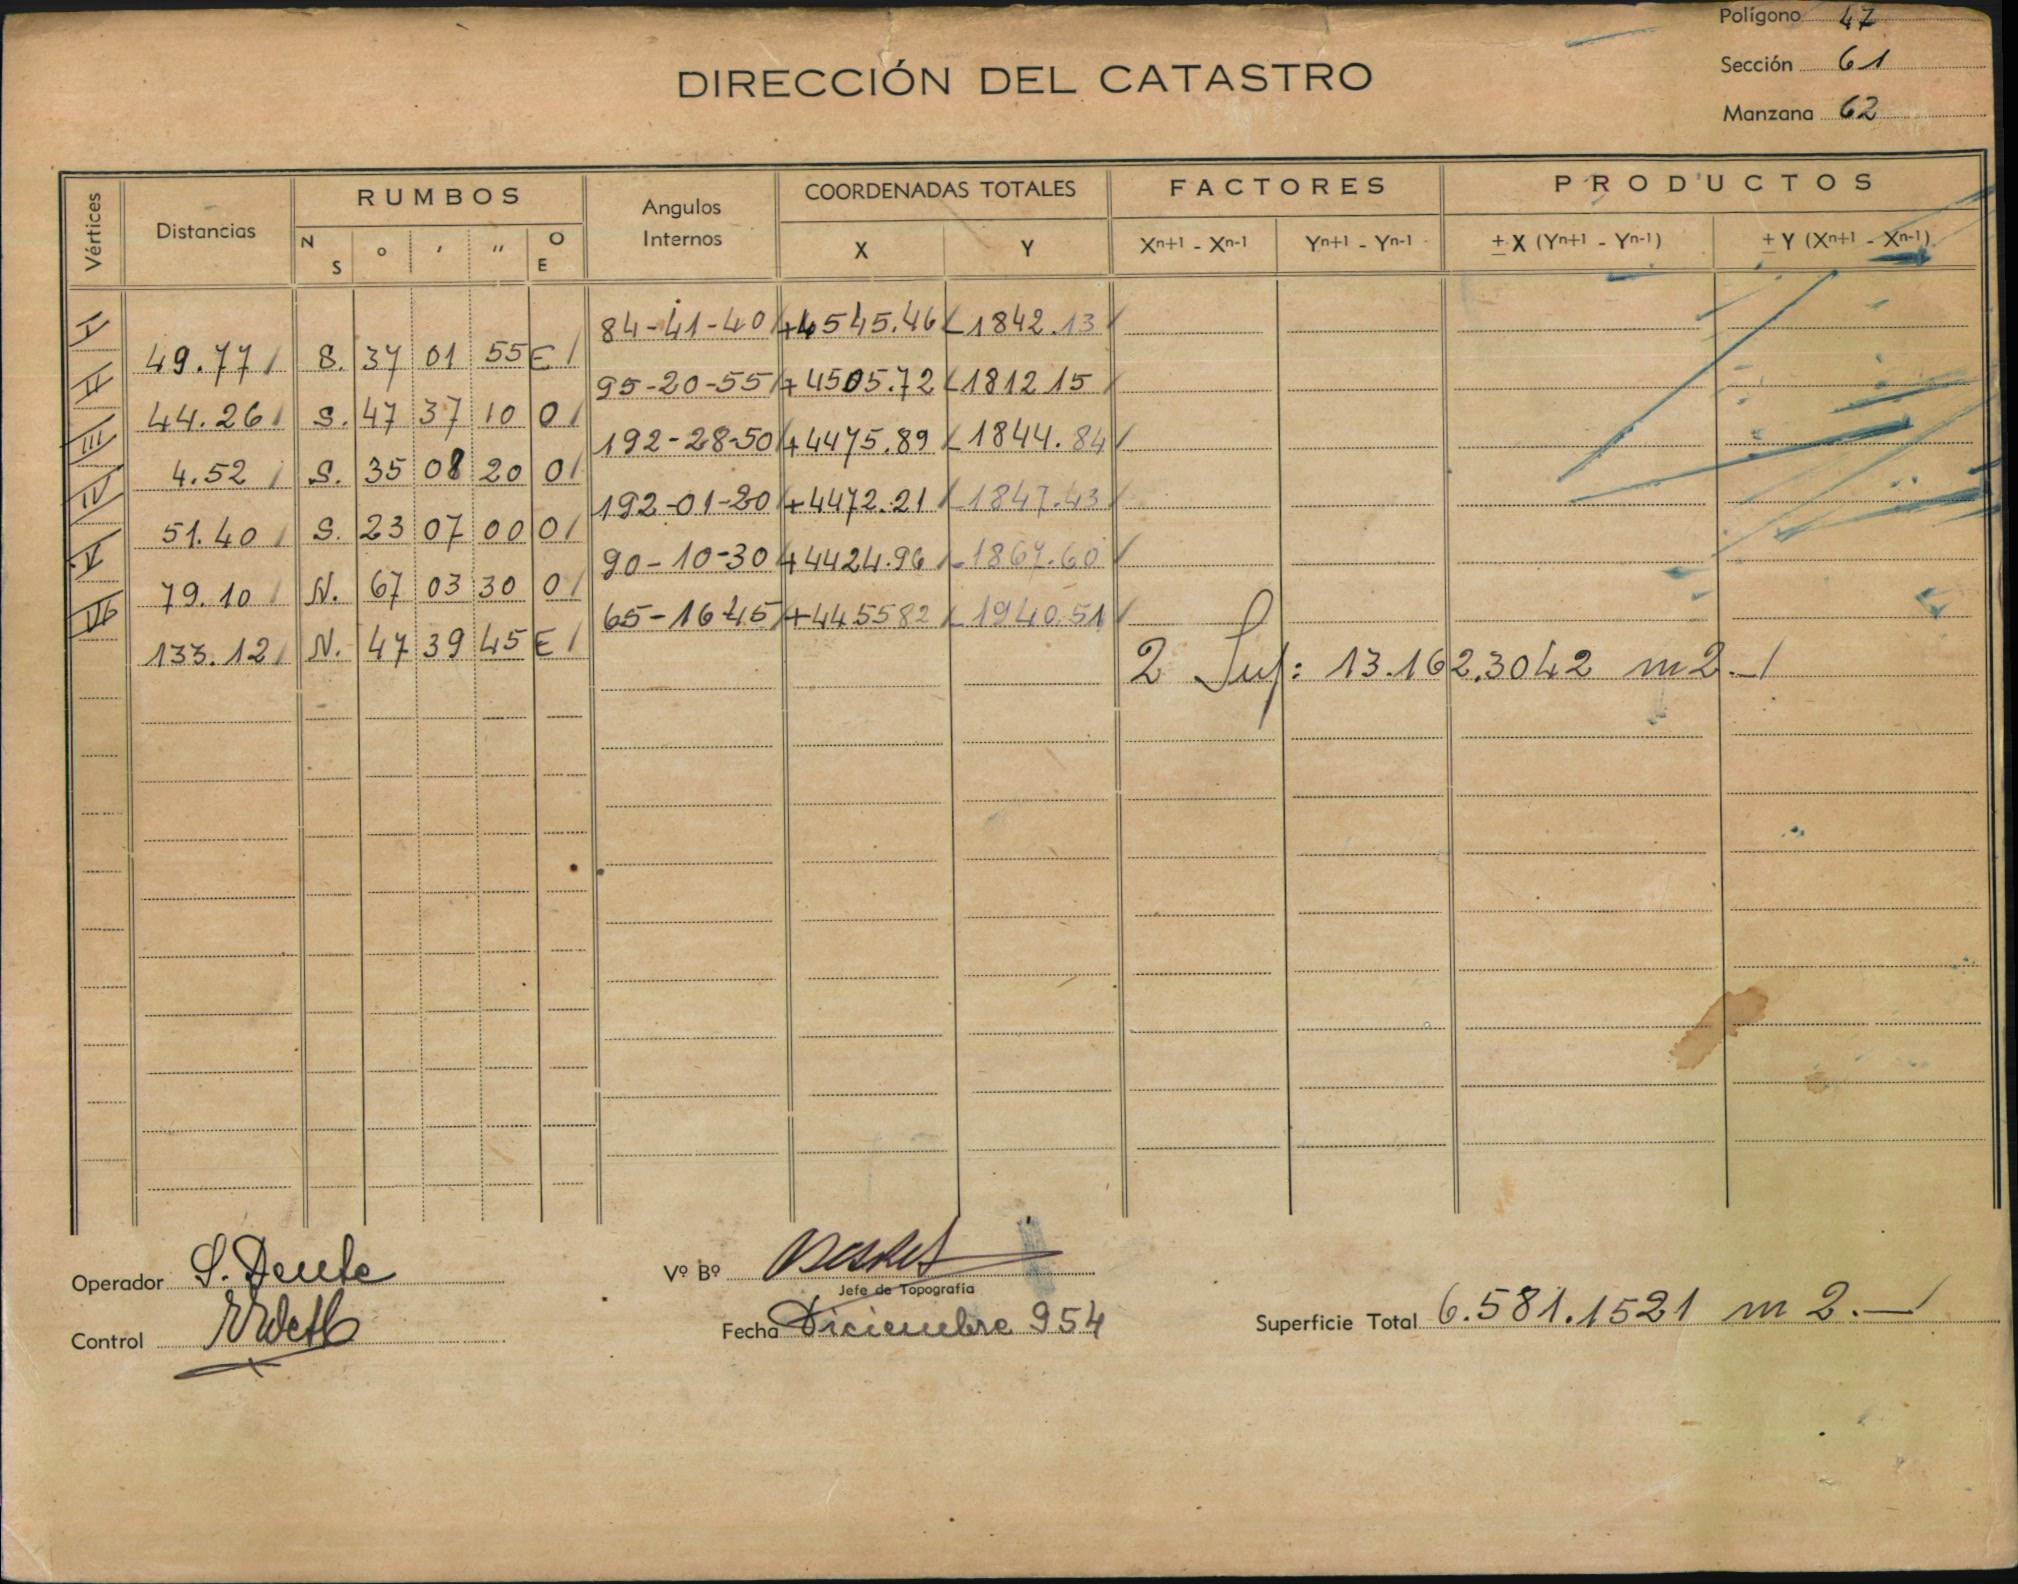 Polígono 47
Sección 61
Manzana 62
DIRECCIÓN DEL CATASTRO
Vértices Distancias RUMBOS Angulos Internos COORDENADAS TOTALES FACTORES PRODUCTOS
N S ° ' '' O E X Y Xn+1 - Xn-1 Yn+1 - Yn-1 ± X (Yn+1 - Yn-1) ± Y (Xn+1 - Xn-1)
I 84-41-40 +4545.46 -1842.13
49.77 S. 37 01 55 E
II 95-20-55 +4505.72 -1812 15
44.26 S. 47 37 10 O
III 192-28-50 +4475.89 -1844.84
4.52 S. 35 08 20 O
IV 192-01-20 +4472.21 -1847.43
51.40 S. 23 07 00 O
V 90-10-30 +4424.96 -1867.60
79.10 N. 67 03 30 O
VI 65-16-45 +4455 82 -1940.51
133.12 N. 47 39 45 E
2 Sup: 13.162.3042 m2.-
Operador S. Dente
Vº Bº
Jefe de Topografía
Control
Fecha Diciembre 954
Superficie Total 6.581.1521 m2.-